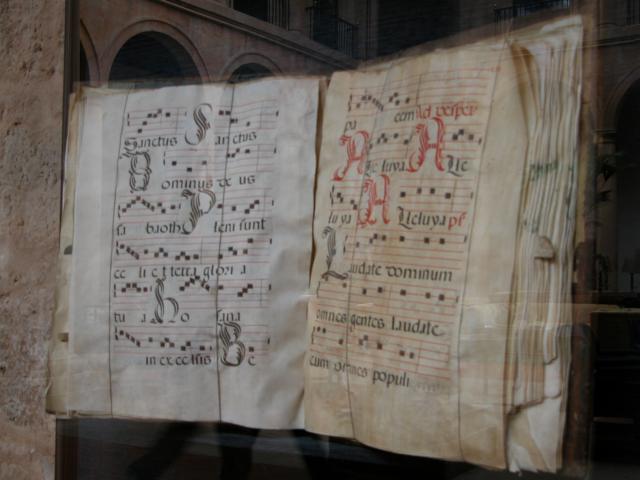 Sanctus Sanctus
Dominus de us
sa baoth Pleni sunt
ce li et terra glori a
tu a Ho sana
in ex cel sis Be
pa cem Ad vesper
Alle luya Alle
lu ya Alleluya ps
Laudate dominum
omnes gentes laudate
eum omnes populi